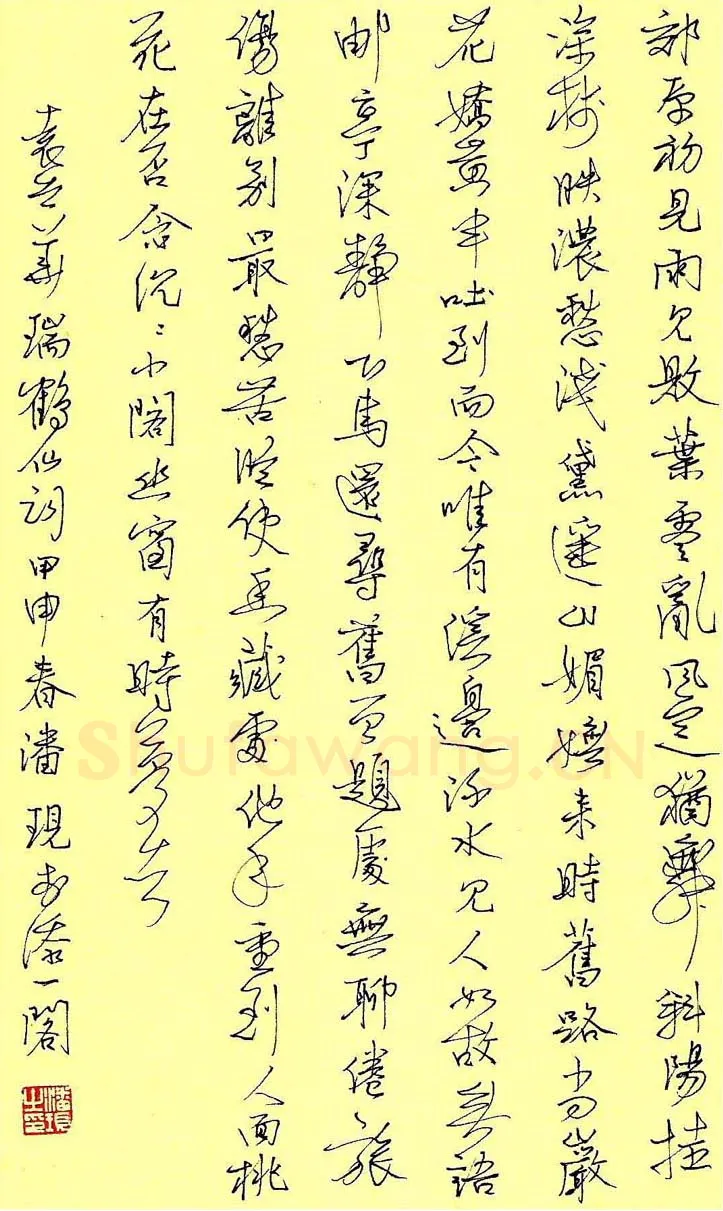 郊原初見雨見敗葉零亂風定猶舞斜陽挂
深樹映濃愁淺黛遥山媚嫵来時舊路尚巖
花嬌黄半吐到而今唯有溪邊流水見人如故無語
邮亭深靜下馬還尋舊曾題處無聊倦旅
傷離别最愁苦縱使藏處他年重到人面桃
花在否念沉〻小閣幽窗有時夢
袁去華瑞鶴仙詞甲申春潘現書添一閣
潘現之印
Shufawang.CN